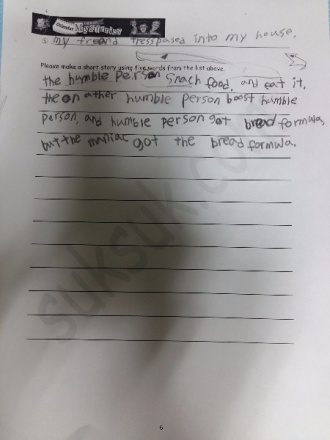 my freand tresspased into my house.
Please make a short story using five words from the list above.
the humble person snach food, and eat it,
the on other humble person boast humble
person, and humble person got bread formula,
but the maniac got the bread formula.
suksuk.co
6